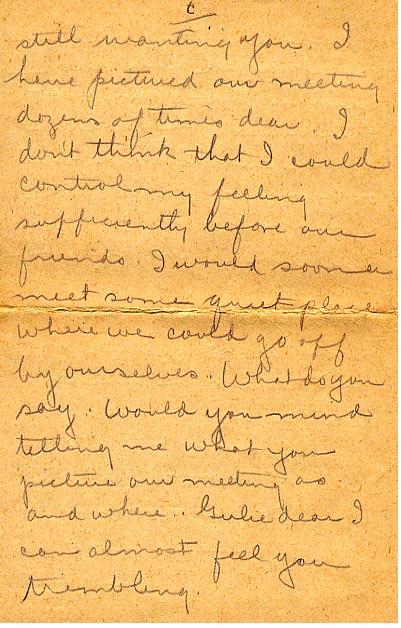 6
still wanting you. I
have pictured our meeting
dozens of times dear. I
don't think that I could
control my feeling
sufficiently before our
friends. I would sooner
meet some quiet place
where we could go off
by ourselves. What do you
say. Would you mind
telling me what you
picture our meeting as
and where.. Gulie dear I
can almost feel you
trembling.